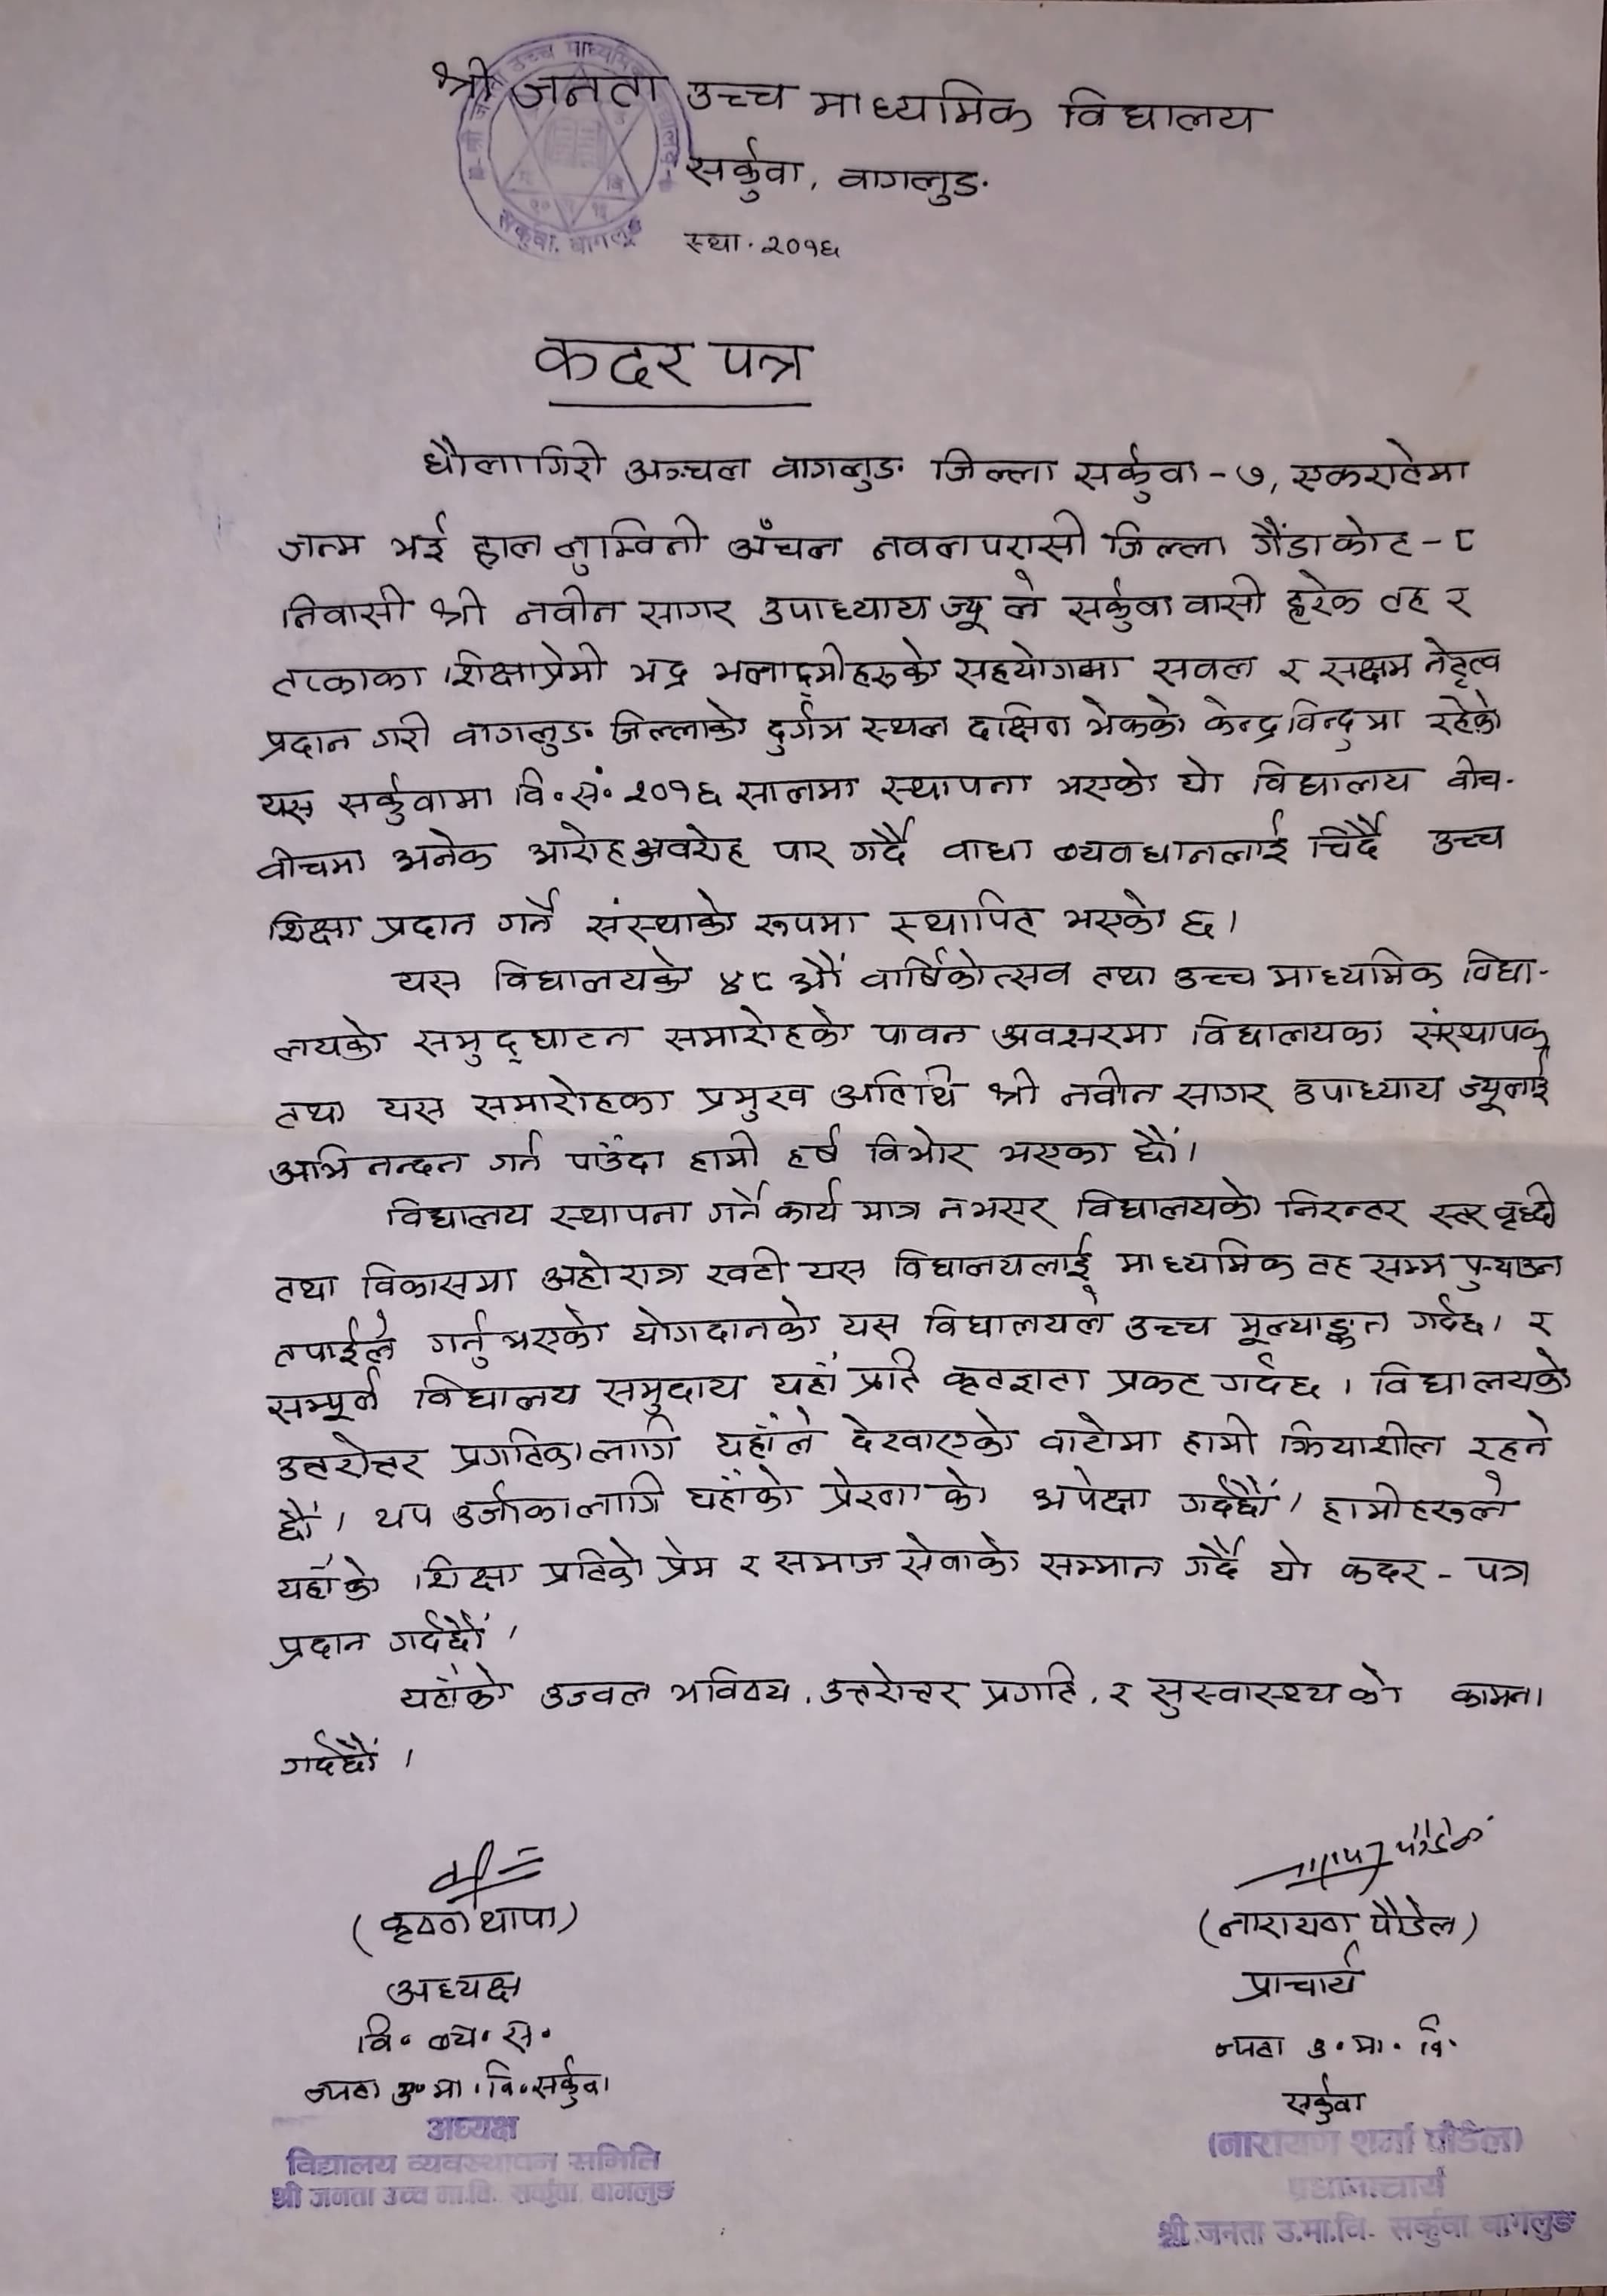 श्री जनता उच्च माध्यमिक विद्यालय
सर्कुवा, वागलुङ.
स्था. २०१६
सर्कुवा, बागलुङ
कदर पत्र
धौलागिरी अञ्चल वागलुङ जिल्ला सर्कुवा - ७, एकरातेमा
जन्म भई हाल लुम्विनी अँचल नवलपरासी जिल्ला गैंडाकोट - ८
निवासी श्री नवीन सागर उपाध्याय ज्यू ले सर्कुवा वासी हरेक तह र
तप्काका शिक्षाप्रेमी भद्र भलाद्मीहरुको सहयोगमा सवल र सक्षम नेतृत्व
प्रदान गरी वागलुङ जिल्लाको दुर्गम स्थल दक्षिण भेकको केन्द्रविन्दुमा रहेको
यस सर्कुवामा वि.सं. २०१६ सालमा स्थापना भएको यो विद्यालय वीच-
वीचमा अनेक आरोह अवरोह पार गर्दै वाधा व्यवधानलाई चिर्दै उच्च
शिक्षा प्रदान गर्ने संस्थाको रुपमा स्थापित भएको छ।
यस विद्यालयको ४८ औं वार्षिकोत्सव तथा उच्च माध्यमिक विद्या-
लयको समुद्घाटन समारोहको पावन अवसरमा विद्यालयका संस्थापक
तथा यस समारोहका प्रमुख अतिथि श्री नवीन सागर उपाध्याय ज्यूलाई
अभिनन्दन गर्न पाउँदा हामी हर्ष विभोर भएका छौं।
विद्यालय स्थापना गर्ने कार्य मात्र नभएर विद्यालयको निरन्तर स्तर वृद्धी
तथा विकासमा अहोरात्र खटी यस विद्यालयलाई माध्यमिक तह सम्म पुर्‍याउन
तपाईंले गर्नुभएको योगदानको यस विद्यालयले उच्च मूल्याङ्कन गर्दछ। र
सम्पूर्ण विद्यालय समुदाय यहाँ प्रति कृतज्ञता प्रकट गर्दछ। विद्यालयको
उत्तरोत्तर प्रगतिकालागि यहाँले देखाएको वाटोमा हामी क्रियाशील रहने
छौं। थप उर्जाकालागि यहाँको प्रेरणाको अपेक्षा गर्दछौं। हामीहरुले
यहाँको शिक्षा प्रतिको प्रेम र समाज सेवाको सम्मान गर्दै यो कदर - पत्र
प्रदान गर्दछौं।
यहाँको उज्वल भविष्य, उत्तरोत्तर प्रगति, र सुस्वास्थ्य को कामना
गर्दछौं।
(कृष्ण थापा)
अध्यक्ष
वि. व्य. स.
जनता उ. मा. वि. सर्कुवा
अध्यक्ष
विद्यालय व्यवस्थापन समिति
श्री जनता उच्च मा.वि. सर्कुवा बागलुङ
(नारायण पौडेल)
प्राचार्य
जनता उ. मा. वि.
सर्कुवा
(नारायण शर्मा पौडेल)
प्रधानाचार्य
श्री जनता उ.मा.वि. सर्कुवा बागलुङ